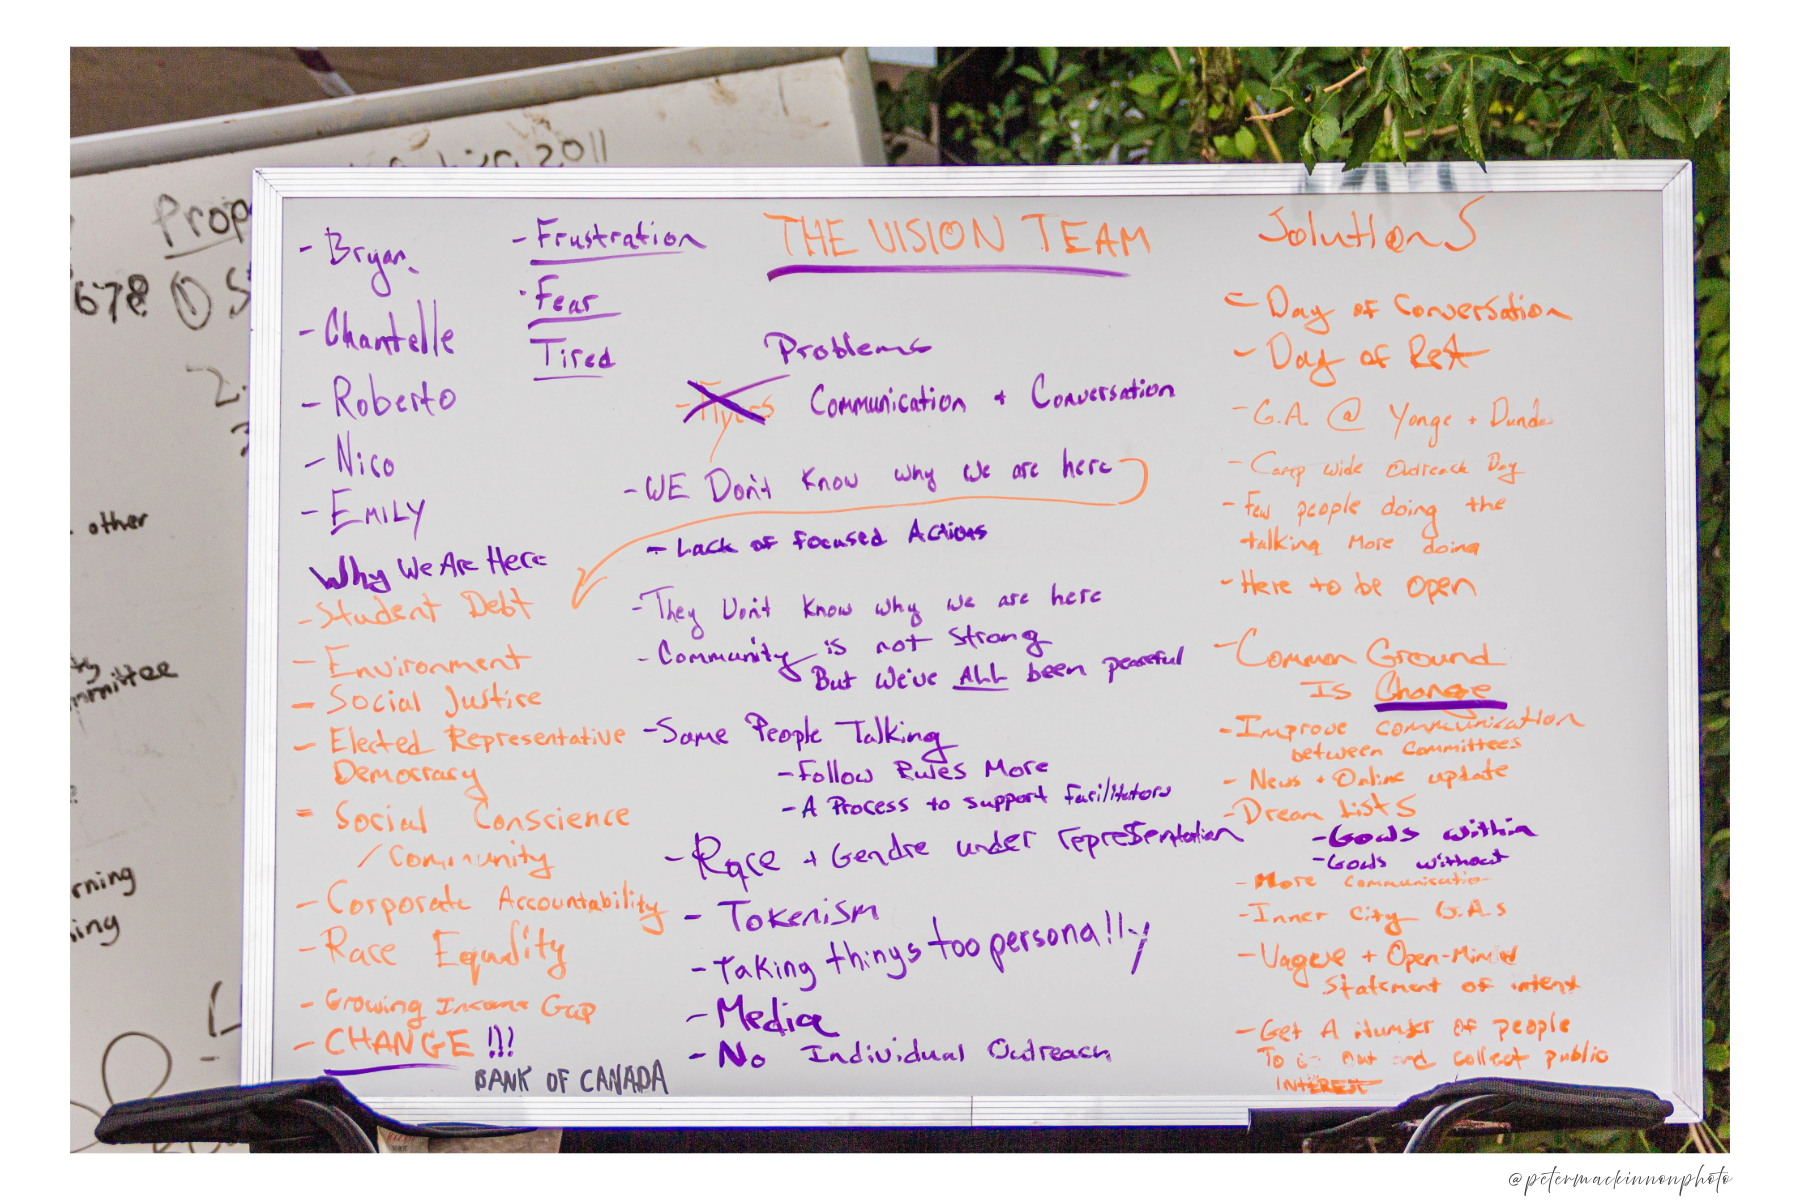 2011
Prop
678 ① S
2.
3
other
ty
mmittee
rning
ing
- Bryan
- Chantelle
- Roberto
- Nico
- EMILY
- Frustration
· Fear
Tired
THE VISION TEAM
Why We Are Here
- Student Debt
- Environment
- Social Justice
- Elected Representative
Democracy
= Social Conscience
/ Community
- Corporate Accountability
- Race Equality
- Growing Income Gap
- CHANGE !!!
BANK OF CANADA
Problems
- Flyers
Communication + Conversation
- WE Don't Know why we are here
- Lack of focused Actions
- They Don't Know why we are here
- Community is not Strong
But We've ALL been peaceful
- Same People Talking
- Follow Rules More
- A Process to support facilitators
- Race + Gendre under representation
- Tokenism
- Taking things too personally
- Media
- No Individual Outreach
Solutions
- Day of Conversation
- Day of Rest
- G.A. @ Yonge + Dundas
- Camp wide Outreach Day
- Few people doing the
talking More doing
- Here to be open
- Common Ground
Is Change
- Improve communication
between Committees
- News + Online update
- Dream Lists
- Goals within
- Goals without
- More communication
- Inner City G.A.s
- Vague + Open-Minded
Statement of intent
- Get A Number of people
To go out and collect public
INTEREST
@petermackinnonphoto